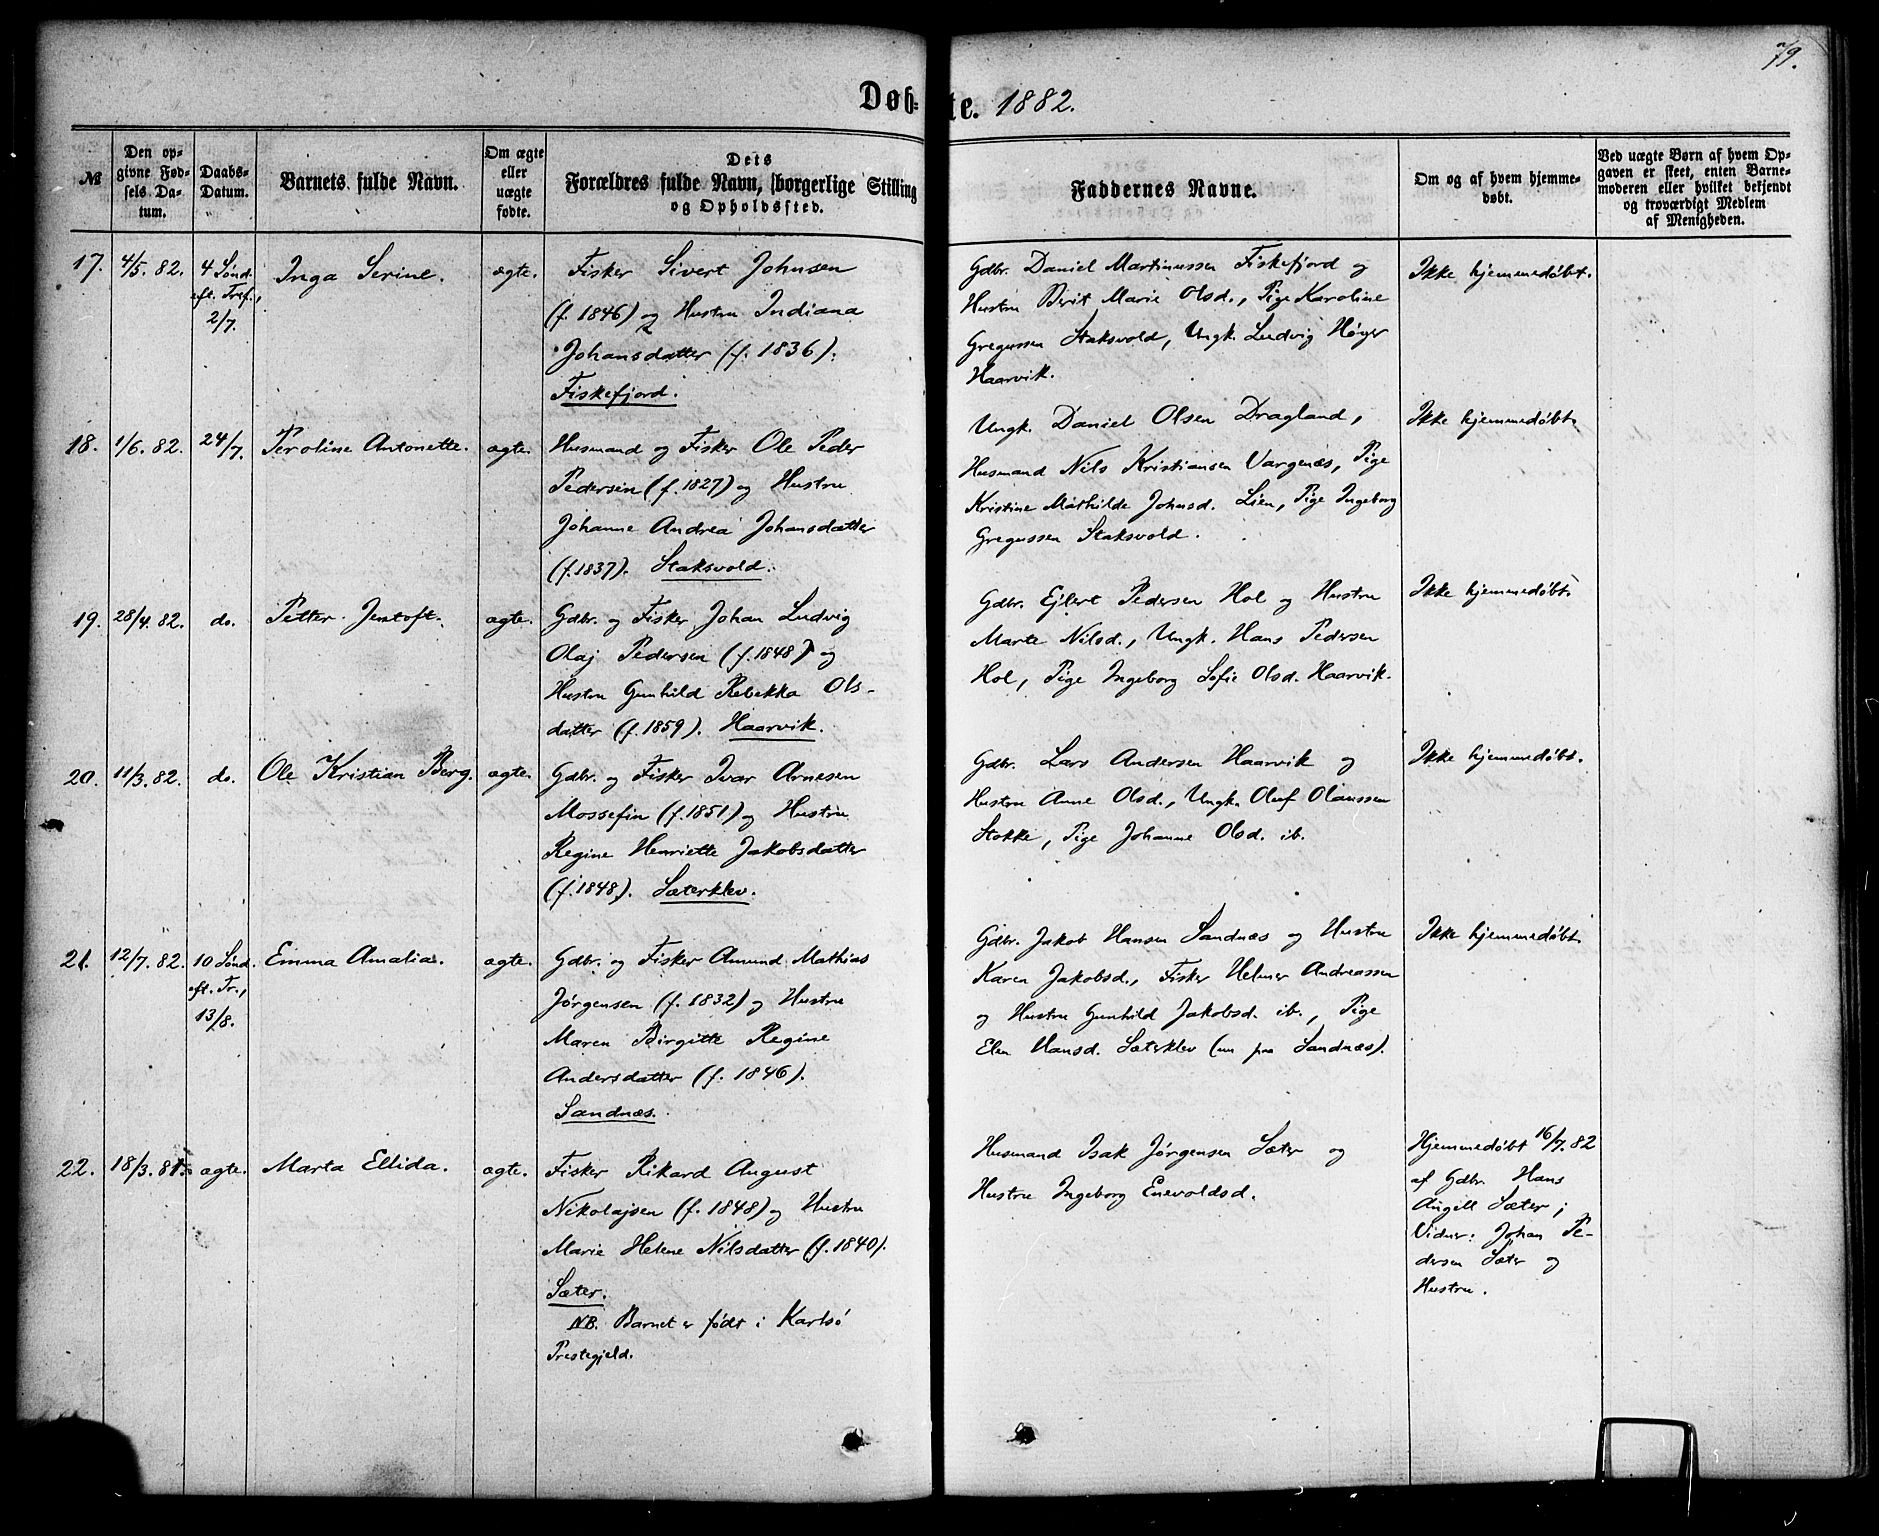 79.
Døb-te. 1882.
№
Den opgivne Fødsels Datum.
Daabs-Datum.
Barnets fulde Navn.
Om ægte eller uægte fødte.
Dets Forældres fulde Navn, borgerlige Stilling og Opholdssted.
Faddernes Navne.
Om og af hvem hjemmedøbt.
Ved uægte Børn af hvem Opgaven er skeet, enten Barnemoderen eller hvilket bekjendt og troværdigt Medlem af Menigheden.
17. 4/5. 82.
4 Sønd.
eft. Tref.,
2/7.
Inga Serine.
ægte.
Fisker Sivert Johnsen
(f. 1846) og Hustru Indiana
Johansdatter (f. 1836).
Fiskefjord.
Gdbr. Daniel Martinussen Fiskefjord og
Hustru Berit Marie Olsd., Pige Karoline
Gregussen Staksvold, Ungk. Ludvig Høyer
Haarvik.
Ikke hjemmedøbt.
18. 1/6. 82. 24/7.
Peroline Antonette.
ægte.
Husmand og Fisker Ole Peder
Pedersen (f. 1827) og Hustru
Johanne Andrea Johansdatter
(f. 1837). Staksvold.
Ungk. Daniel Olsen Dragland,
Husmand Nils Kristiansen Vargenæs, Pige
Kristine Mathilde Johnsd. Lien, Pige Ingeborg
Gregussen Staksvold.
Ikke hjemmedøbt.
19. 28/4. 82. do.
Petter Jentoft.
ægte.
Gdbr. og Fisker Johan Ludvig
Olaj Pedersen (f. 1848) og
Hustru Gunhild Rebekka Ols-
datter (f. 1859). Haarvik.
Gdbr. Ejlert Pedersen Hol og Hustru
Marte Nilsd., Ungk. Hans Pedersen
Hol, Pige Ingeborg Sofie Olsd. Haarvik.
Ikke hjemmedøbt.
20. 11/3. 82. do.
Ole Kristian Berg.
ægte.
Gdbr. og Fisker Ivar Arnesen
Mossefin (f. 1851) og Hustru
Regine Henriette Jakobsdatter
(f. 1848). Sæterklev.
Gdbr. Lars Andersen Haarvik og
Hustru Anne Olsd., Ungk. Oluf Olaussen
Stokke, Pige Johanne Olsd. ib.
Ikke hjemmedøbt.
21. 12/7. 82.
10 Sønd.
eft. Tr.,
13/8.
Emma Amalia.
ægte.
Gdbr. og Fisker Amund Mathias
Jørgensen (f. 1832) og Hustru
Maren Birgitte Regine
Andersdatter (f. 1846).
Sandnæs.
Gdbr. Jakob Hansen Sandnæs og Hustru
Karen Jakobsd., Fisker Helmer Andreassen
og Hustru Gunhild Jakobsd. ib., Pige
Elen Hansd. Sæterklev (nu paa Sandnæs).
Ikke hjemmedøbt.
22. 18/3. 81. ægte.
Marta Ellida.
ægte.
Fisker Rikard August
Nikolajsen (f. 1848) og Hustru
Marie Helene Nilsdatter (f. 1840).
Sæter.
NB. Barnet er født i Karlsö
Prestegjeld.
Husmand Isak Jørgensen Sæter og
Hustru Ingeborg Enevoldsd.
Hjemmedøbt 16/7. 82
af Gdbr. Hans
Angell Sæter;
Vidner: Johan Pe-
dersen Sæter og
Hustru.